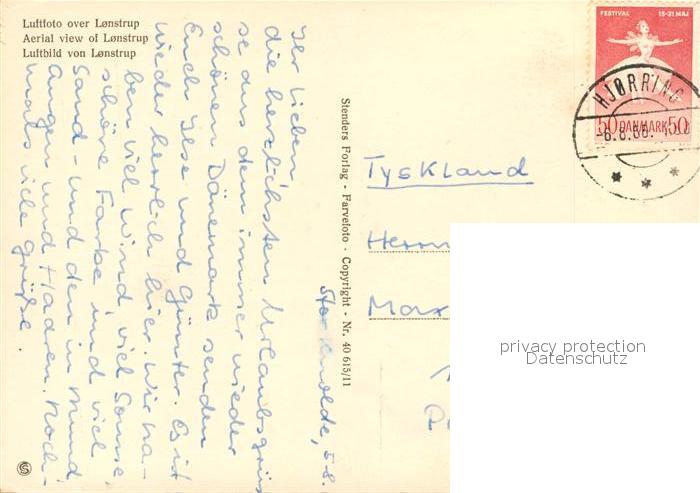 Luftfoto over Lønstrup
Aerial view of Lønstrup
Luftbild von Lønstrup
Ihr Lieben
die herzlichsten Urlaubsgrüs
se aus dem immer wieder
schönen Dänemark senden
Euch Ilse und Günter. Es ist
wieder herrlich hier. Wir ha-
ben viel Wind, viel Sonne,
schöne Farbe und viel
Sand - und den in Mund
Augen und Haaren. Noch-
mals viele Grüße.
5.8.
Stenders Forlag - Farvefoto - Copyright - Nr. 40 615/11
FESTIVAL 15-31 MAJ
50 DANMARK 50
HJØRRING
Tyskland
Herrn
Max
privacy protection
Datenschutz